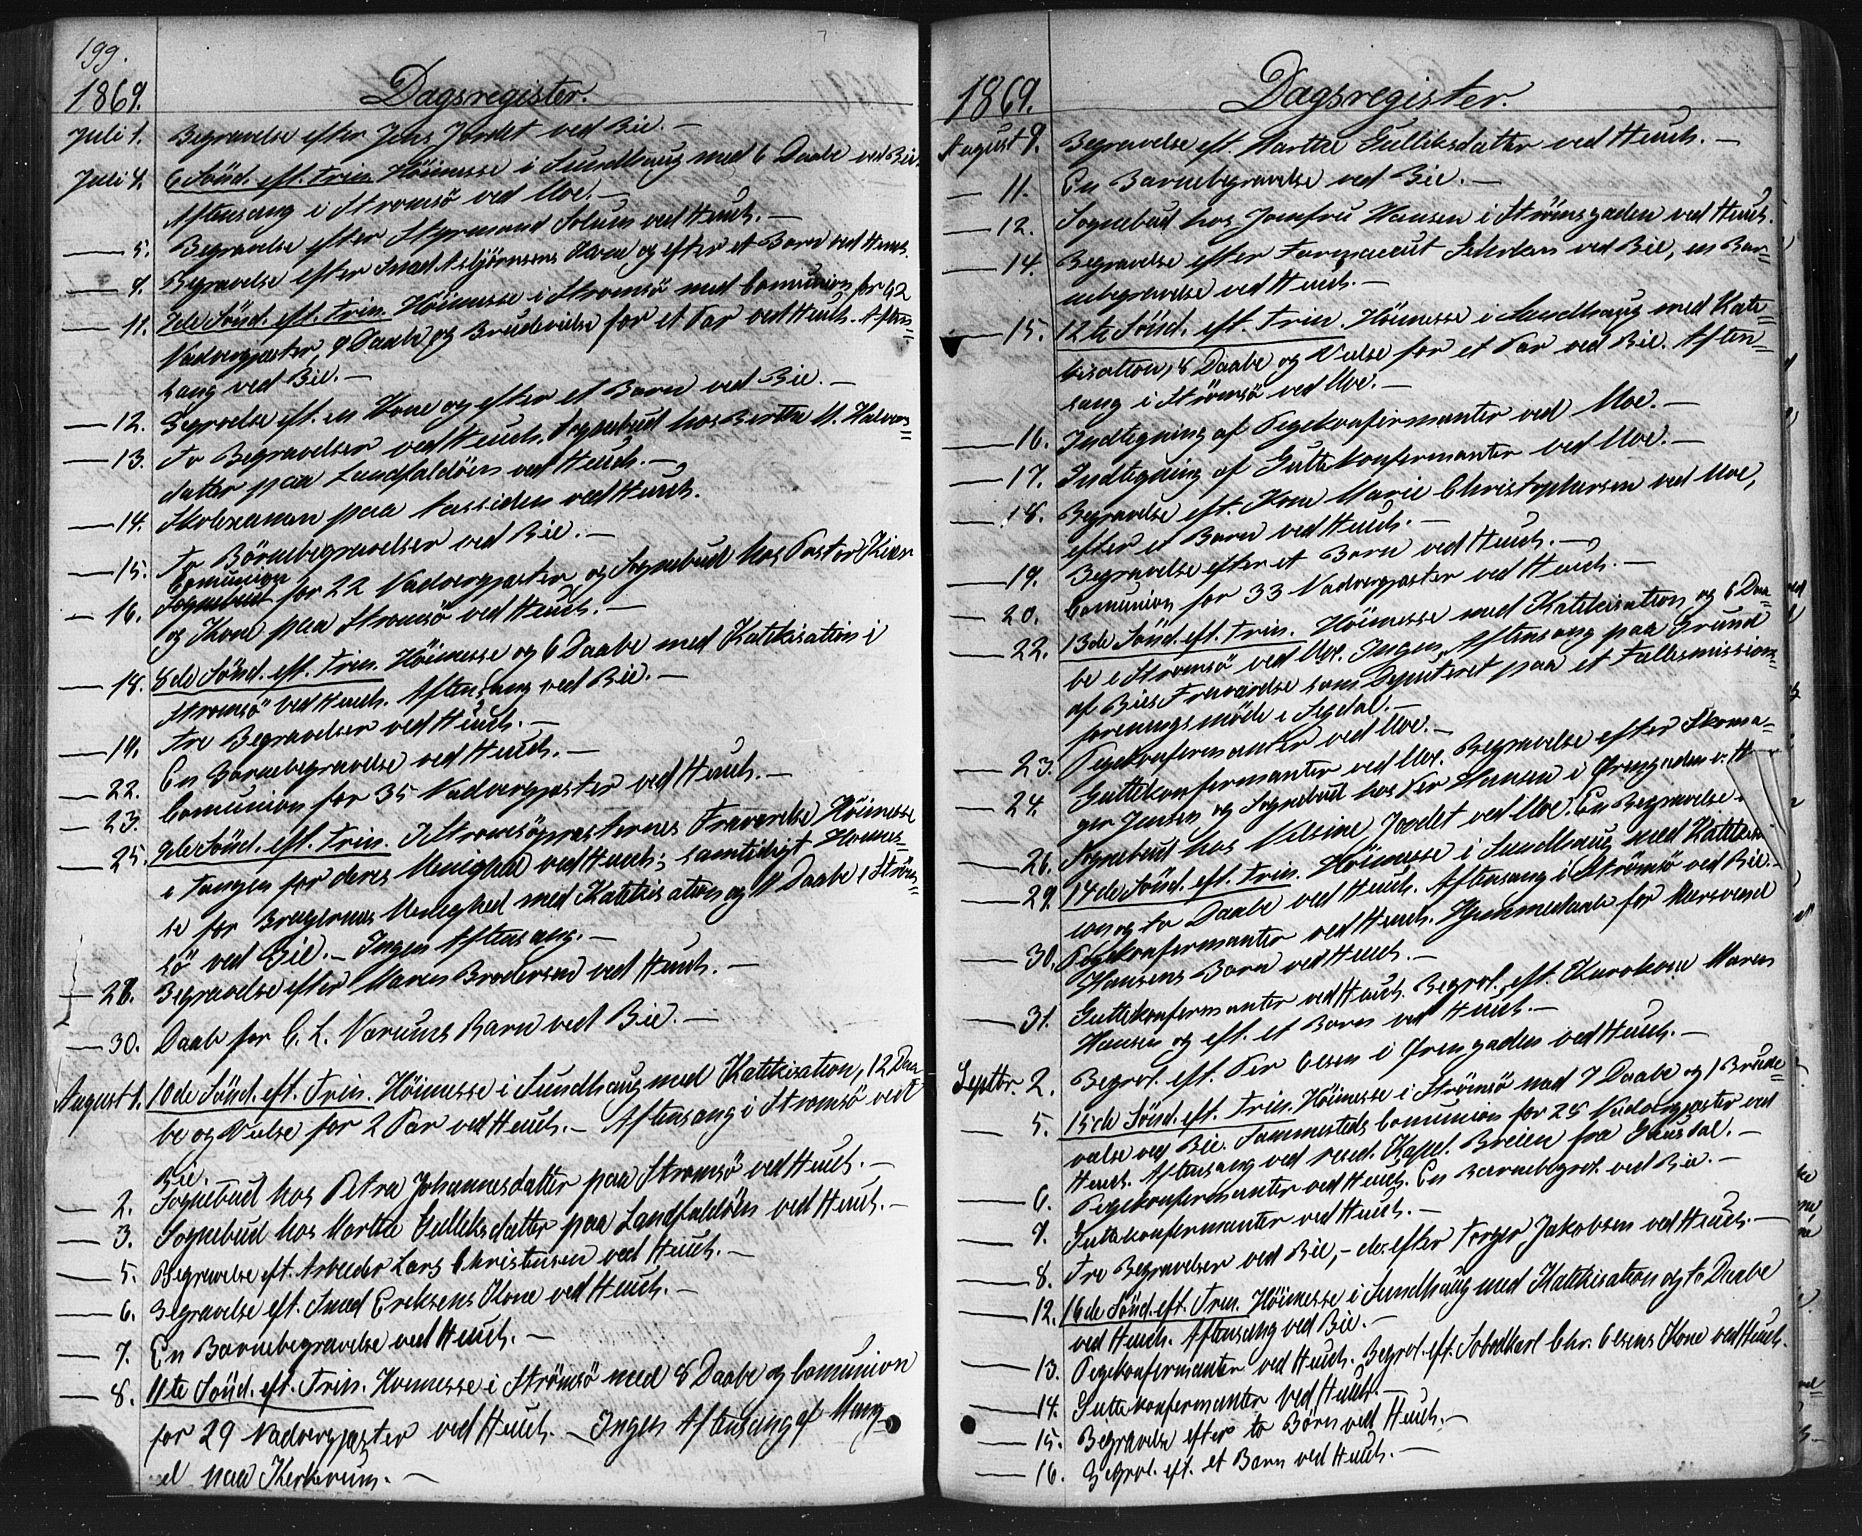 199.
1869. Dagsregister.
Juli 1. Begravelse efter Jens Jordet ved Bie. —
Juli 4. 6 Sönd. eft. Trin. Höimesse i Sundhaug med 6 Daabe ved Bie.
Aftensang i Strömsö ved Moe. —
— 5. Begravelse efter Styrmand Solum ved Heuch. —
Begravelse efter Smed Asbjörnsens Kone og efter et Barn ved Heuch.
— 11. 7de Sönd. eft. Trin. Höimesse i Strömsö med Comunion for 42
Nadvergjæster, 9 Daabe og Brudevielse for et Par ved Heuch. Aften=
sang ved Bie. —
— 12. Begravelse eft. en Kone og efter et Barn ved Bie. —
— 13. To Begravelser ved Heuch. Sognebud hos Berthe M. Halvors=
datter paa Landfaldöen ved Heuch. —
— 14. Skolexamen paa Aassiden ved Heuch.
— 15. To Börnebegravelser ved Bie. —
— 16. Comunion for 22 Nadvergjæster og Sognebud hos Pastor Kiær
og Kone paa Strömsö ved Heuch. —
— 18. 8de Sönd. eft. Trin. Höimesse og 6 Daabe med Katekisation i
Strömsö ved Heuch. Aftensang ved Bie. —
— 19. Tre Begravelser ved Heuch. —
— 22. En Barnebegravelse ved Heuch. —
— 23. Comunion for 35 Nadvergjæster ved Heuch. —
— 25. 9de Sönd. eft. Trin. I Strömsöpræsternes Fraværelse Höimesse
i Tangen for deres Menighed ved Heuch; samtidigt Höimes=
se for Bragernes Menighed med Katekisation og 11 Daabe i Ström=
sö ved Bie. — Ingen Aftensang. —
— 28. Begravelse efter Maren Brodersen ved Heuch. —
— 30. Daab for C. L. Nærums Barn ved Bie. —
August 1. 10de Sönd. eft. Trin. Höimesse i Sundhaug med Katekisation, 12 Daa=
be og Vielse for 2 Par ved Heuch. — Aftensang i Strömsö ved
Bie. —
— 2. Sognebud hos Petra Johannesdatter paa Strömsö ved Heuch. —
— 3. Sognebud hos Marthe Gulliksdatter paa Landfaldöen ved Heuch. —
— 5. Begravelse eft. Arbeider Lars Christensen ved Heuch. —
— 6. Begravelse eft. Smed Eriksens Kone ved Heuch. —
— 7. En Barnebegravelse ved Heuch. —
— 8. 11te Sönd. eft. Trin. Höimesse i Strömsö med 8 Daabe og Comunion
for 29 Nadvergjæster ved Heuch. — Ingen Aftensang af Mang=
el paa Kirkerum. —
1869. Dagsregister.
August 9. Begravelse eft. Marthe Gulliksdatter ved Heuch. —
— 11. En Barnebegravelse ved Bie. —
— 12. Sognebud hos Jomfru Hansen i Strömsgaden ved Heuch.
— 14. Begravelse efter Farmaceut ved Bie, en Bar=
nebegravelse ved Heuch. —
— 15. 12te Sönd. eft. Trin. Höimesse i Sundhaug med Kate=
kisation, 8 Daabe og Vielse for et Par ved Bie. Aften=
sang i Strömsö ved Moe. —
— 16. Indtegning af Pigekonfirmanter ved Moe. —
— 17. Indtegning af Guttekonfirmanter ved Moe. —
— 18. Begravelse eft. Kone Marie Christophersen ved Moe,
efter et Barn ved Heuch. —
— 19. Begravelse efter et Barn ved Heuch. —
— 20. Comunion for 33 Nadvergjæster ved Heuch. —
— 22. 13de Sönd. eft. Trin. Höimesse med Katekisation og 6 Daa=
be i Strömsö ved Moe. Ingen Aftensang paa Grund
af Bies Fraværelse som Deputeret paa et Fællesmissions=
foreningsmöde i Sigdal. —
— 23. Pigekonfirmanter ved Moe. —
— 24. Guttekonfirmanter ved Moe. Begravelse efter Skoma=
ger Jensen og Sognebud hos Per Hansen i Örengaden v. H
— 26. Sognebud hos Nilsine Jordet ved Moe. En Begravelse
— 29. 14de Sönd. eft. Trin. Höimesse i Sundhaug med Katekisa
tion og to Daabe ved Heuch. Aftensang i Strömsö ved Bie. —
— 30. Pigekonfirmanter ved Heuch. Hjemmedaab for
Hansens Barn ved Heuch. —
— 31. Guttekonfirmanter ved Heuch. Begrvl. eft. Maren
Hansen og eft. et Barn ved Heuch. —
Septbr. 2. Begrvl. eft. Per Olsen i Örengaden ved Heuch. —
— 5. 15de Sönd. eft. Trin. Höimesse i Strömsö med 7 Daabe og 1 Brude=
vielse ved Bie. Sammesteds Comunion for 28 Nadvergjæster ved
Heuch. Aftensang ved resid. Kapel. Breien fra Gausdal. —
— 6. Pigekonfirmanter ved Heuch. En Barnebegrvl. ved Bie. —
— 7. Guttekonfirmanter ved Heuch. —
— 8. Tre Begravelser ved Bie, — do. efter Torger Jakobsen ved Heuch. —
— 12. 16de Sönd. eft. Trin. Höimesse i Sundhaug med Katekisation og to Daabe
ved Heuch. Aftensang ved Bie. —
— 13. Pigekonfirmanter ved Heuch. Begrvl. eft. Chr. Olsens Kone ved Heuch.
— 14. Guttekonfirmanter ved Heuch. —
— 15. Begravelse efter to Börn ved Heuch. —
— 16. Begrvl. eft. et Barn ved Heuch. —